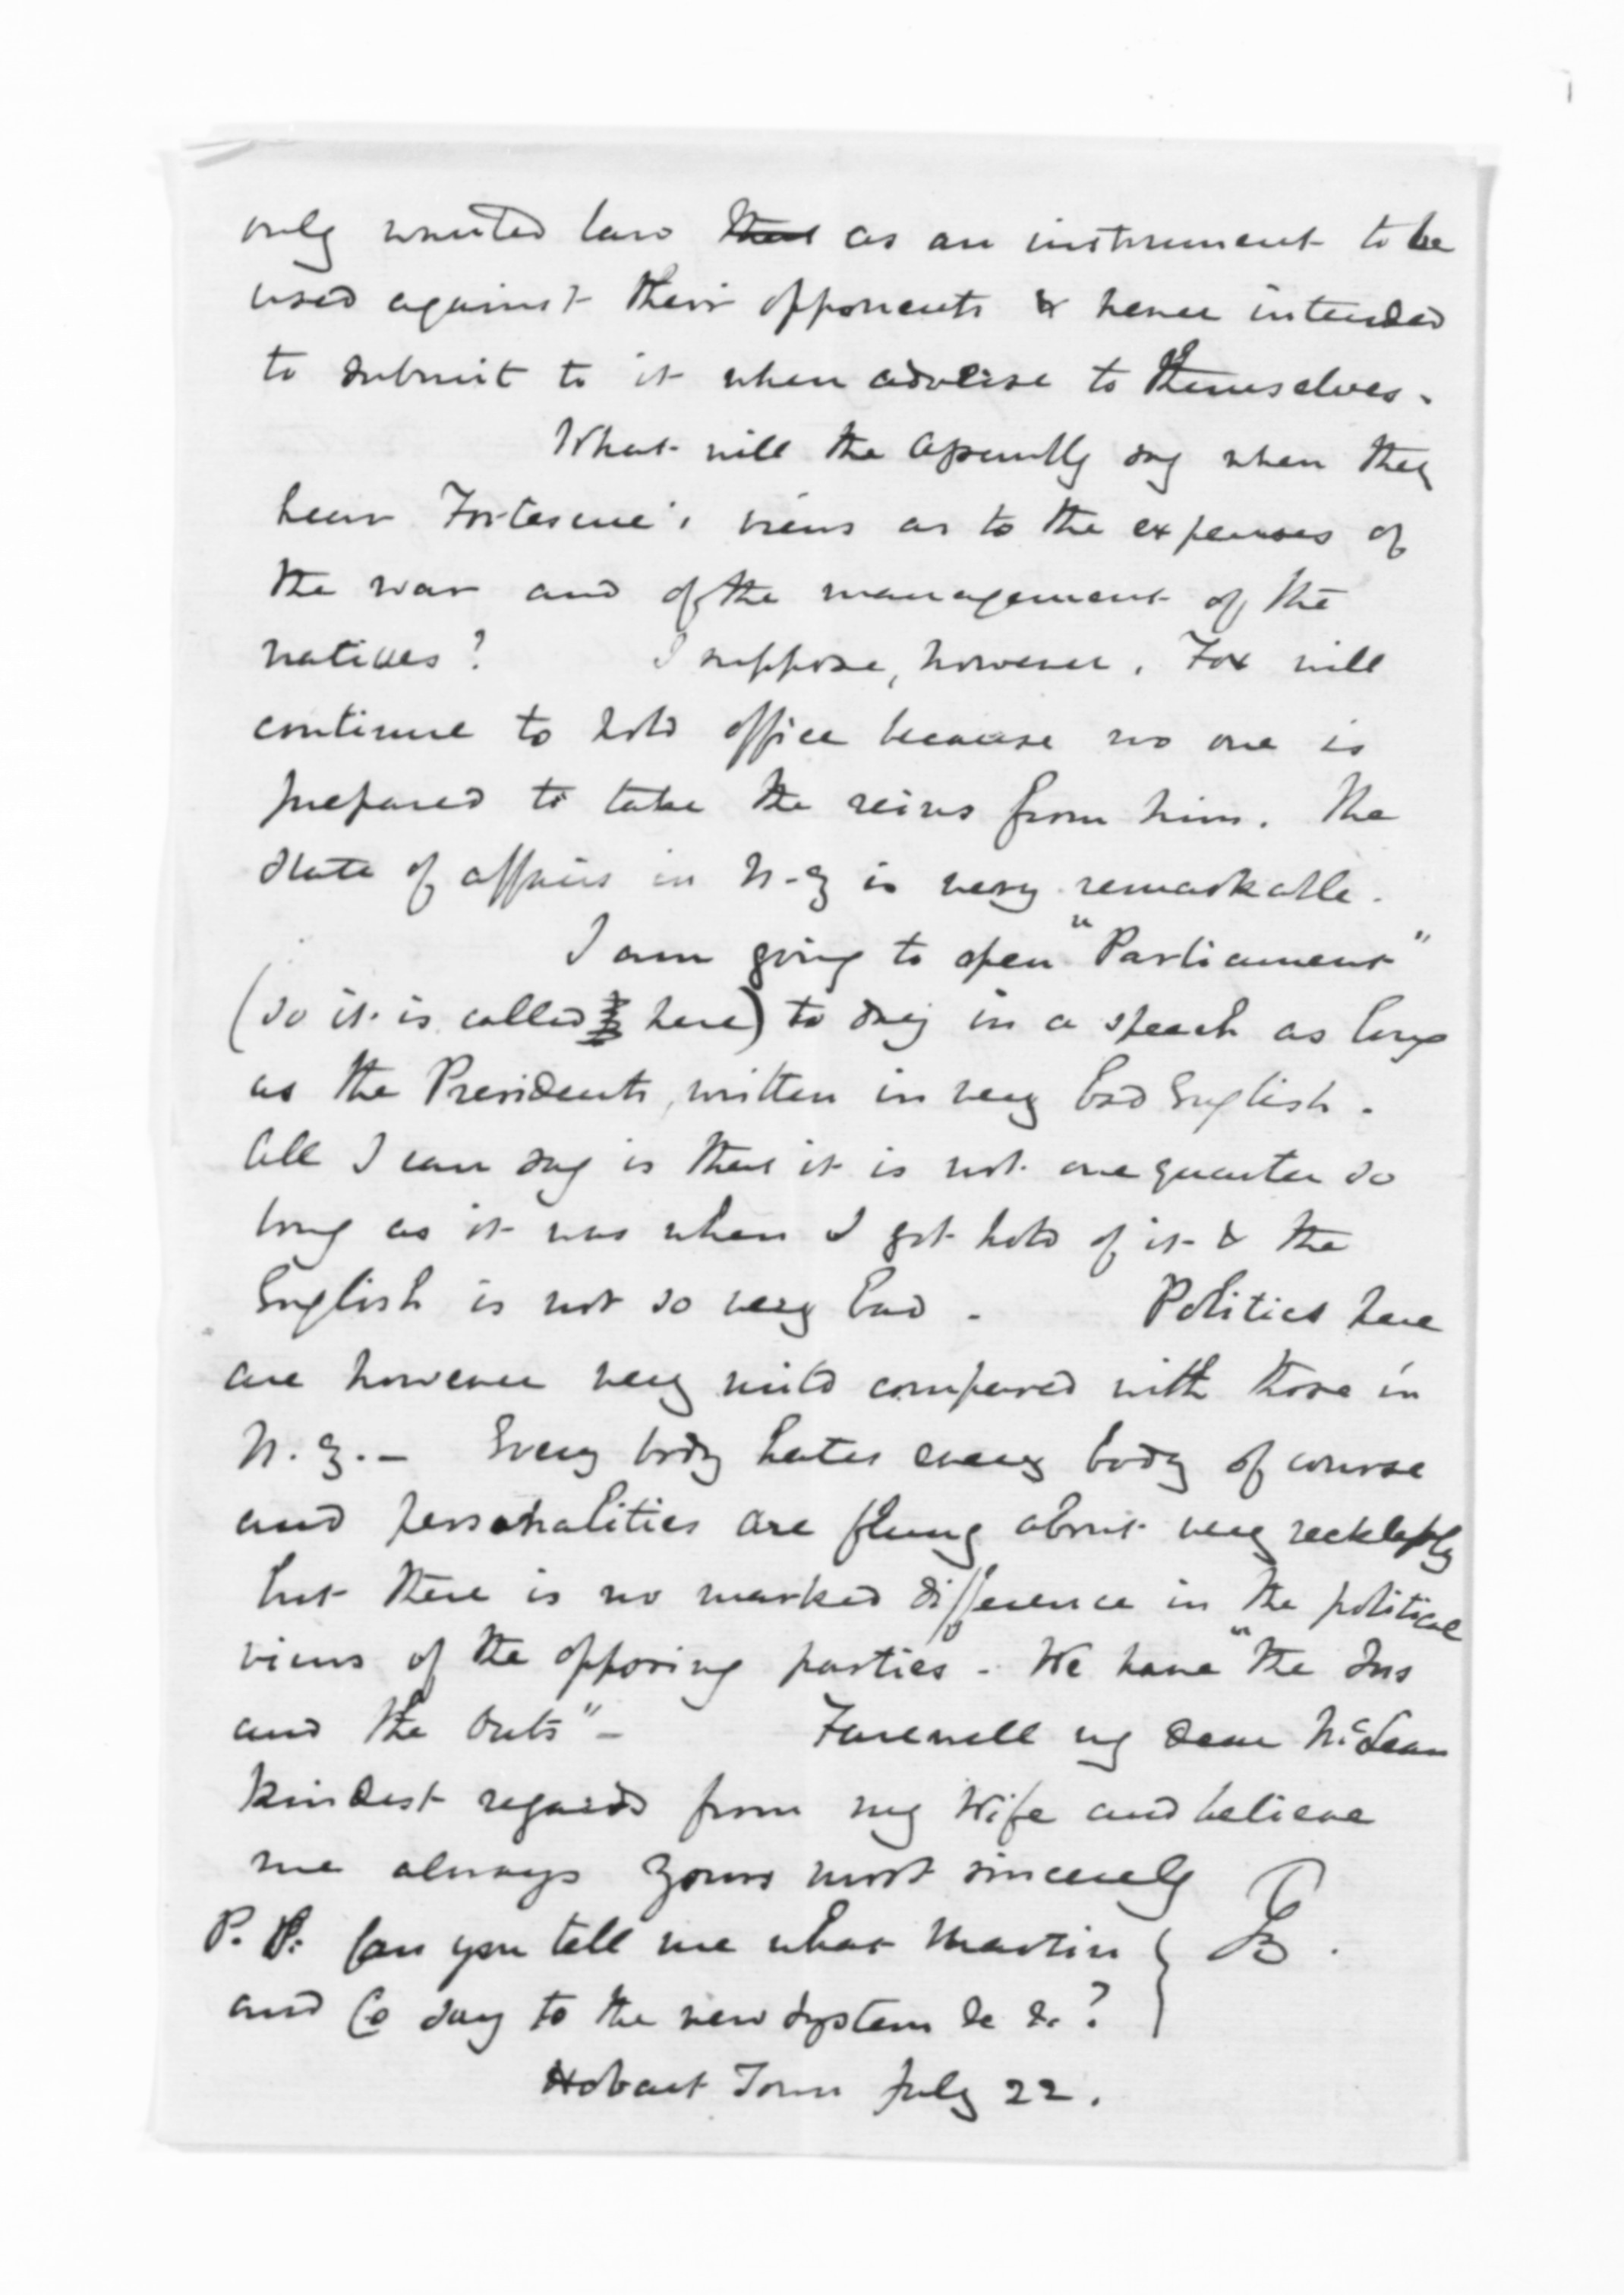 only wanted law that as an instrument to be
used against their opponents & never intended
to submit to it when adverse to themselves.
What will the Assembly say when they
hear Fortescue's views as to the expenses of
the war and of the management of the
natives? I suppose, however, Fox will
continue to hold office because no one is
prepared to take the reins from him. The
state of affairs in N-Z is very remarkable.
I am going to open "Parliament"
(so it is called here) to day in a speech as long
as the Presidents, written in very bad English.
All I can say is that it is not one quarter so
long as it was when I got hold of it & the
English is not so very bad - Politics here
are however very mild compared with those in
N.Z. - Every body hates every body of course
and personalities are flung about very recklessly
but there is no marked difference in the political
views of the opposing parties - We have "the Ins
and the Outs" - Farewell my dear McLean
kindest regards from my Wife and believe
me always yours most sincerely
P. S. Can you tell me what Martin
and Co say to the new system &c &c?
Hobart Town July 22.